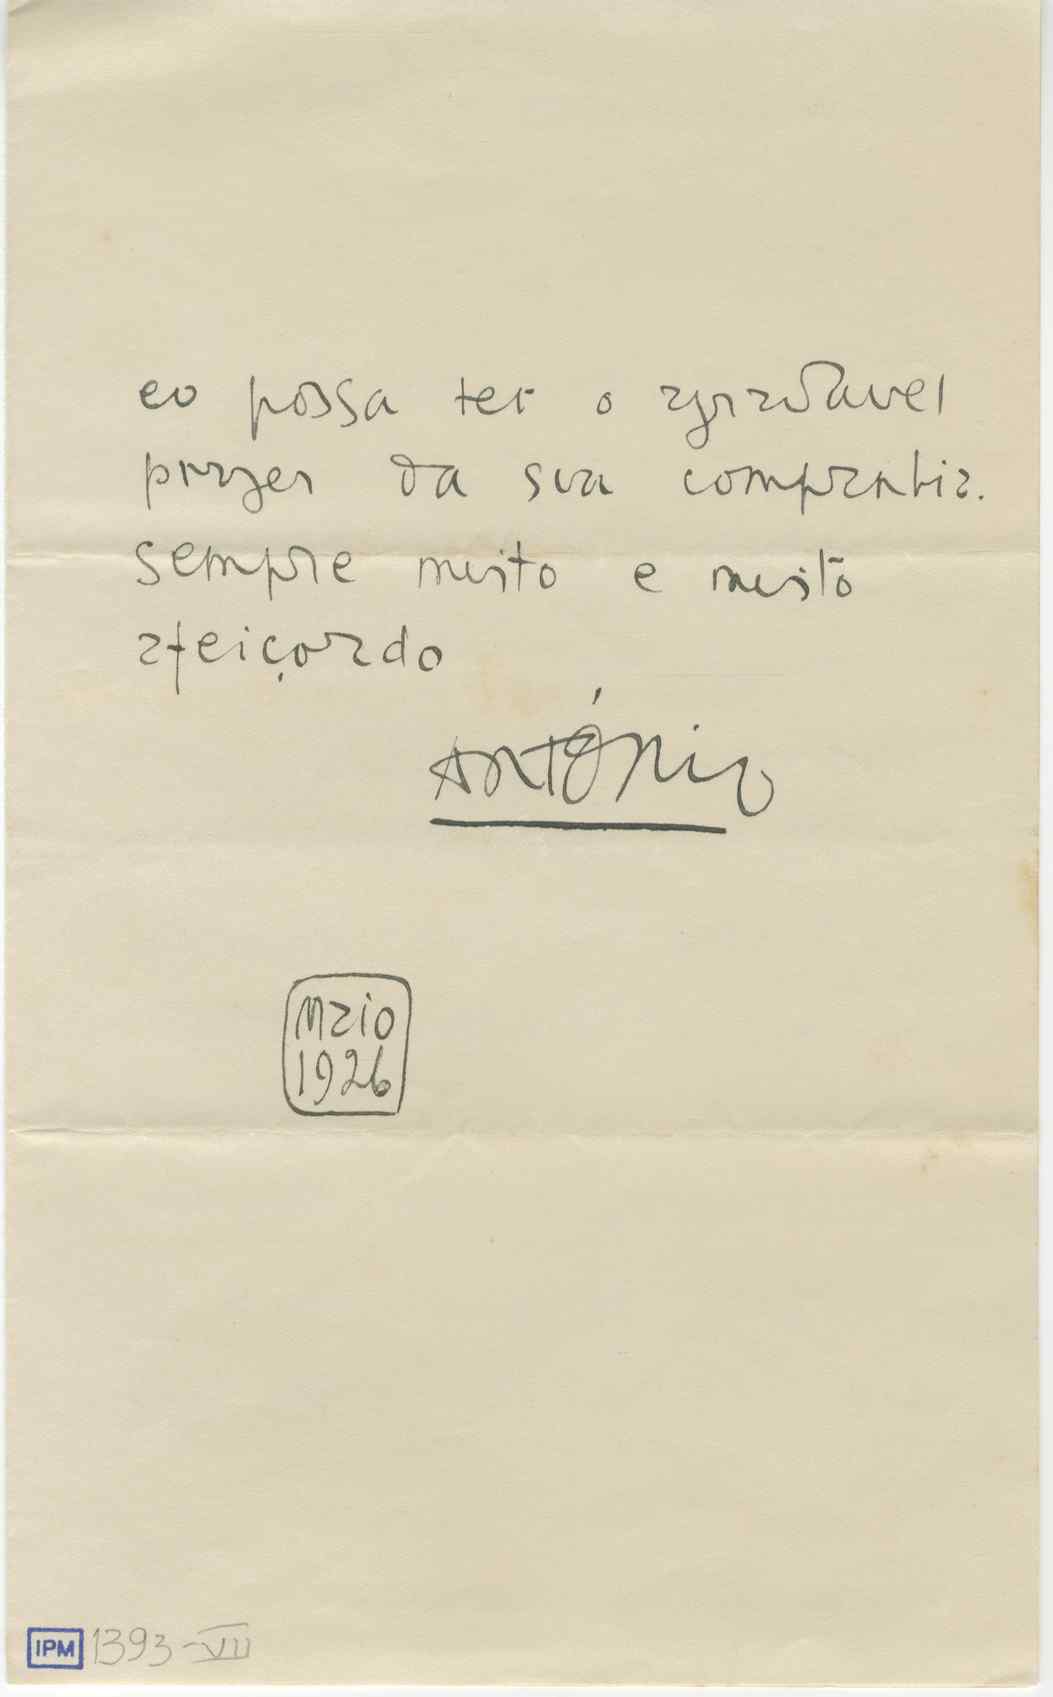 eu possa ter o agradavel
prazer da sua companhia.
sempre muito e muito
afeiçoado
António
Maio
1926
IPM 1393-VII